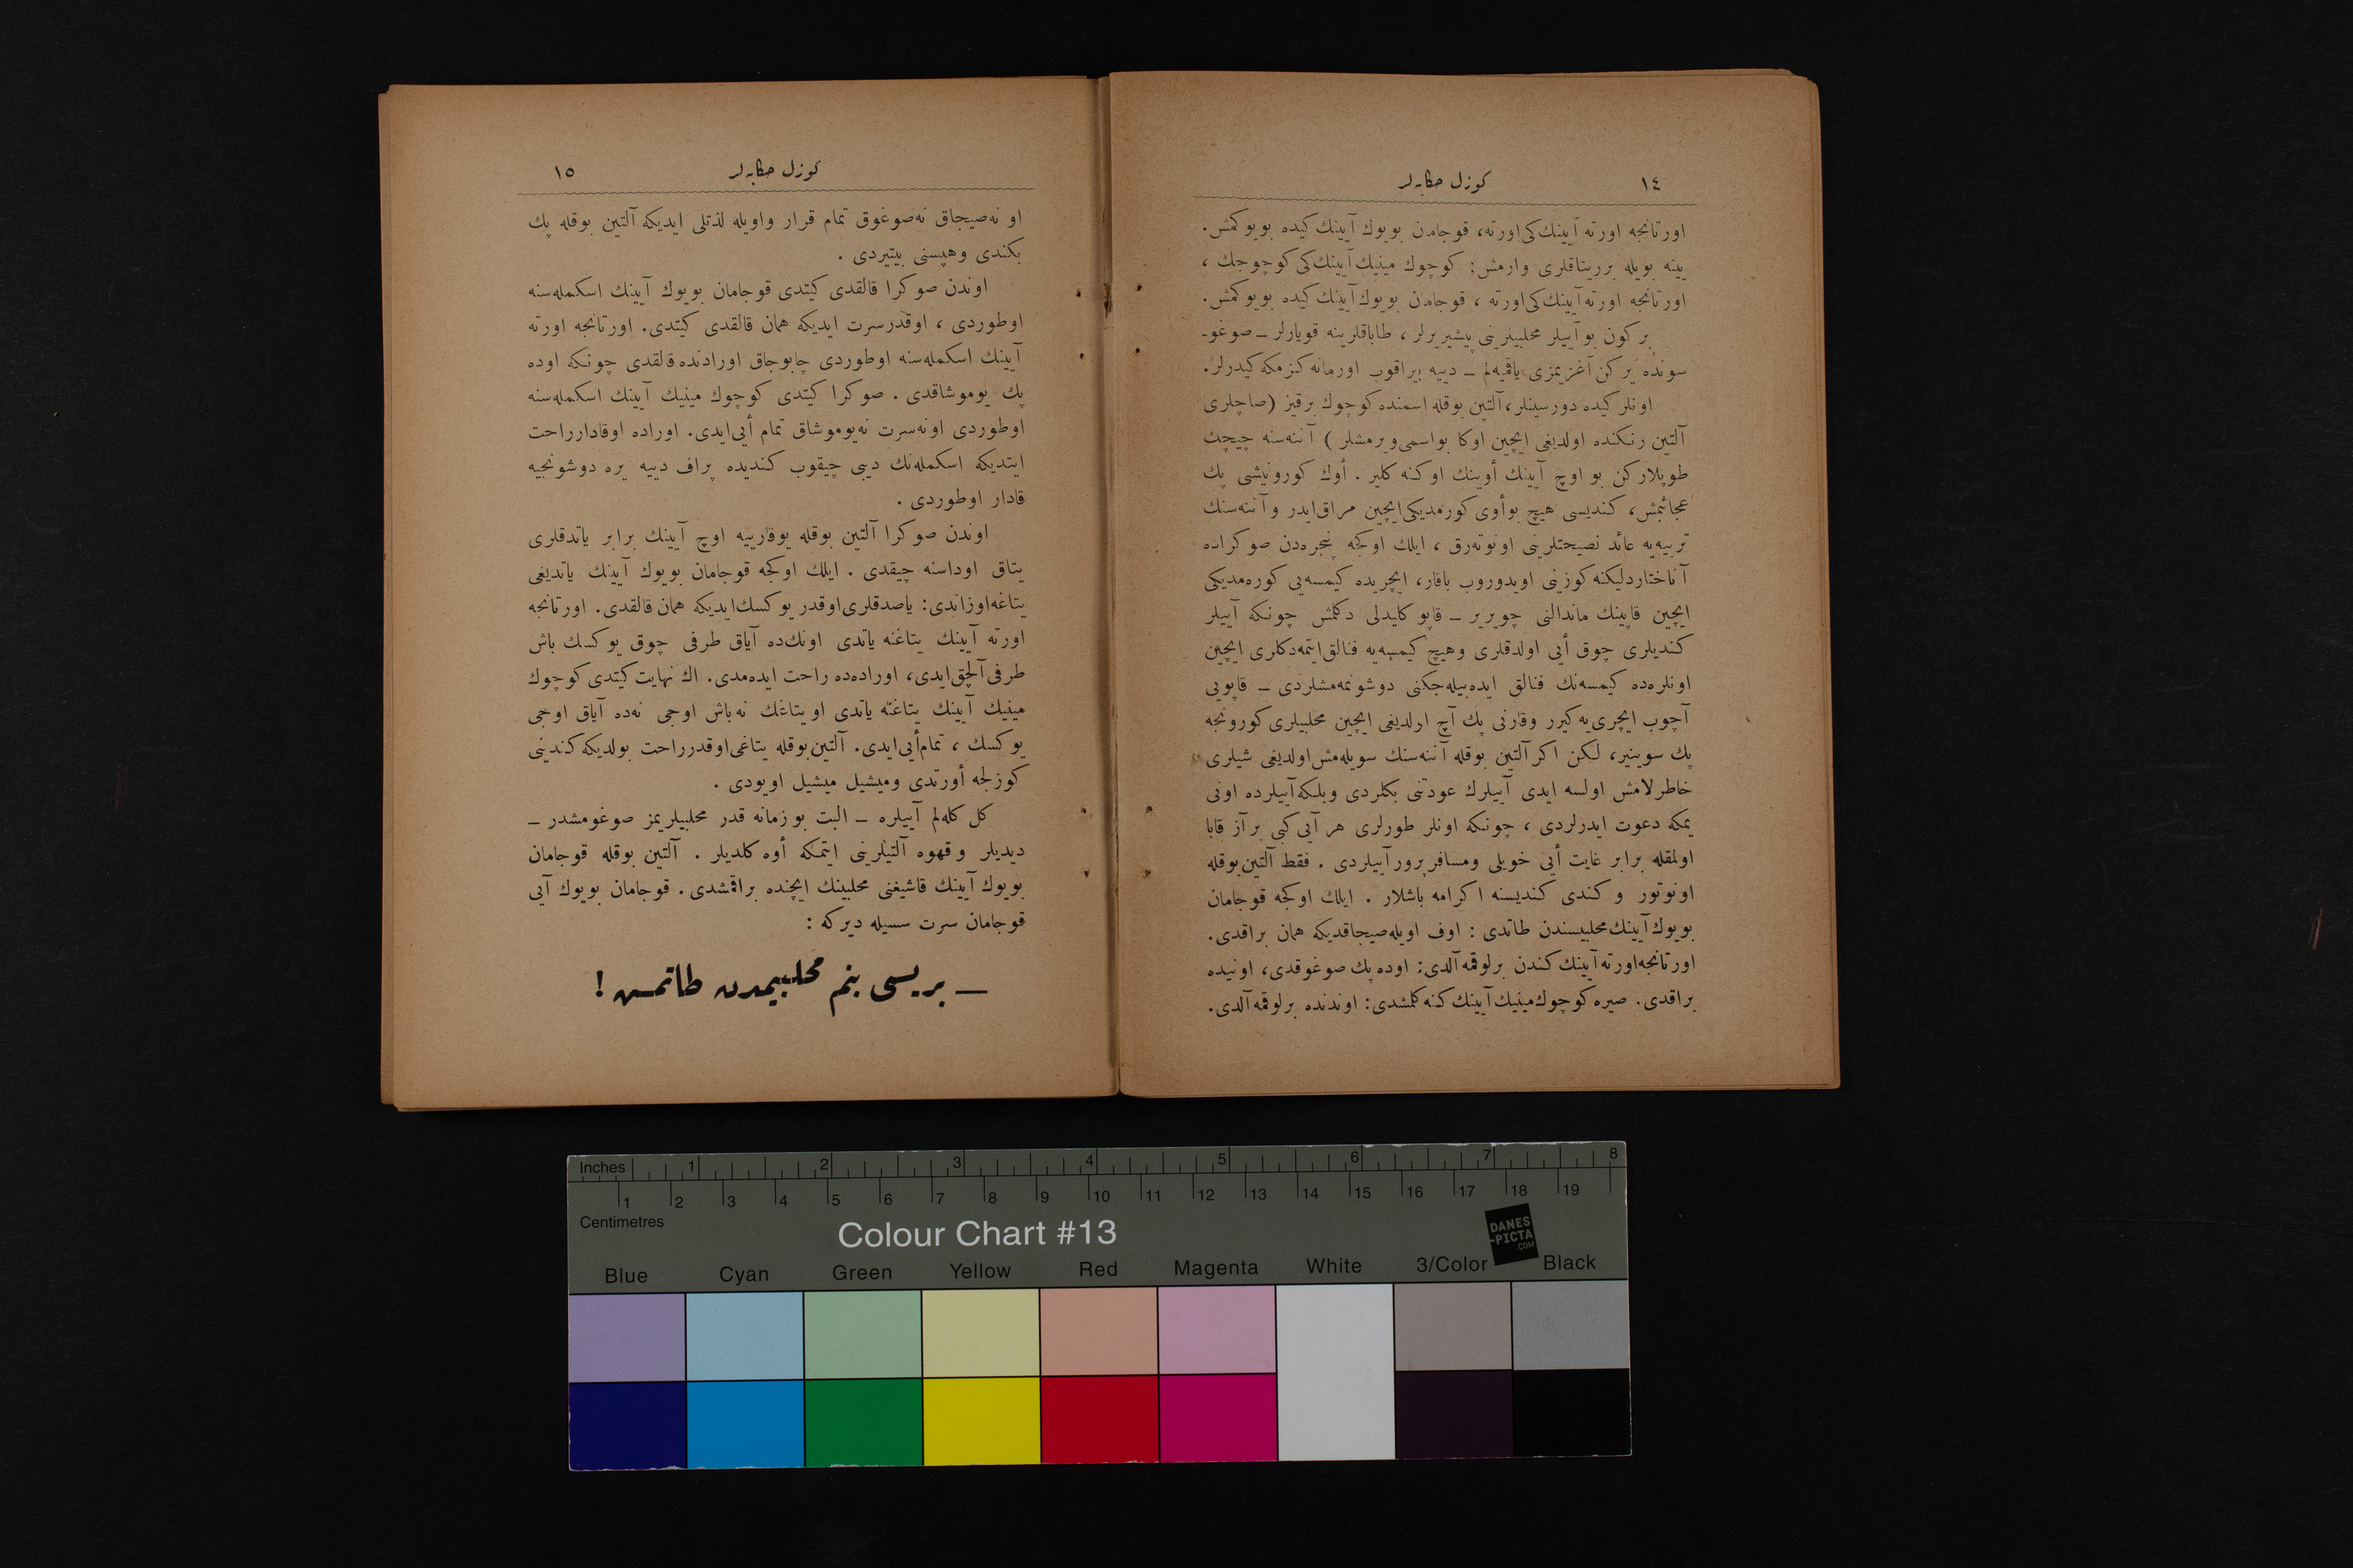 ١٤
كوزل حكايه‌لر
اورتانجه اورته آيينك‌كى اورته، قوجامن بويوك آيينك كيده بويوكمش.
يينه بويله برر يتاقلرى وارمش: كوچوك مينيك آيينك‌كى كوچوجك ،
اورتانجه اورته آيينك‌كى اورته ، قوجامن بويوك آيينك كيده بويوكمش.
بر كون بو آييلر محلبيلرينى پيشيريرلر ، طاباقلرينه قويارلر ــ صوغو-
سونده ير كن آغزيمزى ياقميه‌لم ــ دييه بيراقوب اورمانه كزمكه كيدرلر.
اونلر كيده دورسينلر، آلتين بوقله اسمنده كوچوك بر قيز (صاچلرى
آلتين رنكنده اولديغى ايچين اوكا بو اسمى ويرمشلر ) آننه‌سنه چيچك
طوپلاركن بو اوچ آيينك أوينك اوكنه كلير . أوك كورونيشى پك
عجائبمش، كنديسى هيچ بو أوى كورمديكى ايچين مراق ايدر و آننه‌سنك
تربيه‌يه عائد نصيحتلرينى اونوته‌رق ، ايلك اوكجه پنجره‌دن صوكراده
آناختار دليكنه كوزينى اويدوروب باقار، ايچريده كيمسه‌يى كوره‌مديكى
ايچين قاپينك ماندالنى چويرير ــ قاپو كليدلى دكلمش چونكه آييلر
كنديلرى چوق أيى اولدقلرى وهيچ كيمسه‌يه فنالق ايتمه‌دكلرى ايچين
اونلره‌ده كيمسه‌نك فنالق ايده‌بيله‌جكنى دوشونمه‌مشلردى ــ قاپويى
آچوب ايچرى‌يه كيرر وقارنى پك آچ اولديغى ايچين محلبيلرى كورونجه
پك سوينير، لكن اكر آلتين بوقله آننه‌سنك سويله‌مش اولديغى شيلرى
خاطرلامش اولسه ايدى آييلرك عودتنى بكلردى وبلكه آييلرده اونى
يمكه دعوت ايدرلردى ، چونكه اونلر طورلرى هر آيى كبى بر آز قابا
اولمقله برابر غايت أيى خويلى ومسافرپرور آييلردى . فقط آلتين بوقله
اونوتور و كندى كنديسنه اكرامه باشلار . ايلك اوكجه قوجامان
بويوك آيينك محلبيسندن طاتدى : اوف اويله صيجاقديكه همان براقدى.
اورتانجه اورته آيينك كندن بر لوقمه آلدى: اوده پك صوغوقدى، اونيده
براقدى. صيره كوچوك مينيك آيينك كنه كلمشدى: اوندنده بر لوقمه آلدى.
١٥
كوزل حكايه‌لر
او نه صيجاق نه صوغوق تمام قرار واويله لذتلى ايديكه آلتين بوقله پك
بكندى وهپسنى بيتيردى .
اوندن صوكرا قالقدى كيتدى قوجامان بويوك آيينك اسكمله‌سنه
اوطوردى ، اوقدر سرت ايديكه همان قالقدى كيتدى. اورتانجه اورته
آيينك اسكمله‌سنه اوطوردى چابوجاق اورادنده قالقدى چونكه اوده
پك يوموشاقدى . صوكرا كيتدى كوچوك مينيك آيينك اسكمله‌سنه
اوطوردى اونه سرت نه يوموشاق تمام أيى ايدى. اوراده اوقادار راحت
ايتديكه اسكمله‌نك ديبى چيقوب كنديده پراف دييه يره دوشونجيه
قادار اوطوردى .
اوندن صوكرا آلتين بوقله يوقارييه اوچ آيينك برابر ياتدقلرى
يتاق اوداسنه چيقدى . ايلك اوكجه قوجامان بويوك آيينك ياتديغى
يتاغه اوزاندى: ياصدقلرى اوقدر يوكسك ايديكه همان قالقدى. اورتانجه
اورته آيينك يتاغنه ياتدى اونك‌ده آياق طرفى چوق يوكسك باش
طرفى آلچق ايدى، اوراده‌ده راحت ايده‌مدى. اك نهايت كيتدى كوچوك
مينيك آيينك يتاغنه ياتدى او يتاغك نه باش اوجى نه‌ده آياق اوجى
يوكسك ، تمام أيى ايدى. آلتين بوقله يتاغى اوقدر راحت بولديكه كندينى
كوزلجه أورتدى وميشيل ميشيل اويودى .
كل كله‌لم آييلره ــ البت بو زمانه قدر محلبيلريمز صوغومشدر ــ
ديديلر و قهوه آلتيلرينى ايتمكه أوه كلديلر . آلتين بوقله قوجامان
بويوك آيينك قاشيغنى محلبينك ايچنده براقمشدى. قوجامان بويوك آيى
قوجامان سرت سسيله ديركه :
ــ بريسى بنم محلبيمدن طاتمش !
Inches 1 2 3 4 5 6 7 8
1 2 3 4 5 6 7 8 9 10 11 12 13 14 15 16 17 18 19
Centimetres
Colour Chart #13
DANES
-PICTA
.COM
Blue Cyan Green Yellow Red Magenta White 3/Color Black